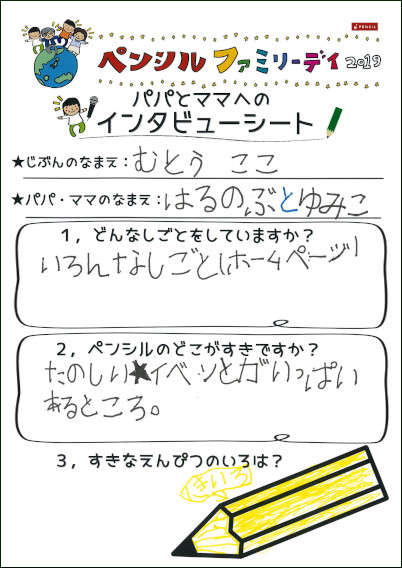 PENCIL
ペンシル ファミリーデイ 2019
パパとママへの
インタビューシート
★じぶんのなまえ:むとう ここ
★パパ・ママのなまえ:はるのぶとゆみこ
1,どんなしごとをしていますか?
いろんなしごと(ホームページ)
2,ペンシルのどこがすきですか?
たのしい★イベントがいっぱい
あるところ。
3,すきなえんぴつのいろは?
きいろ